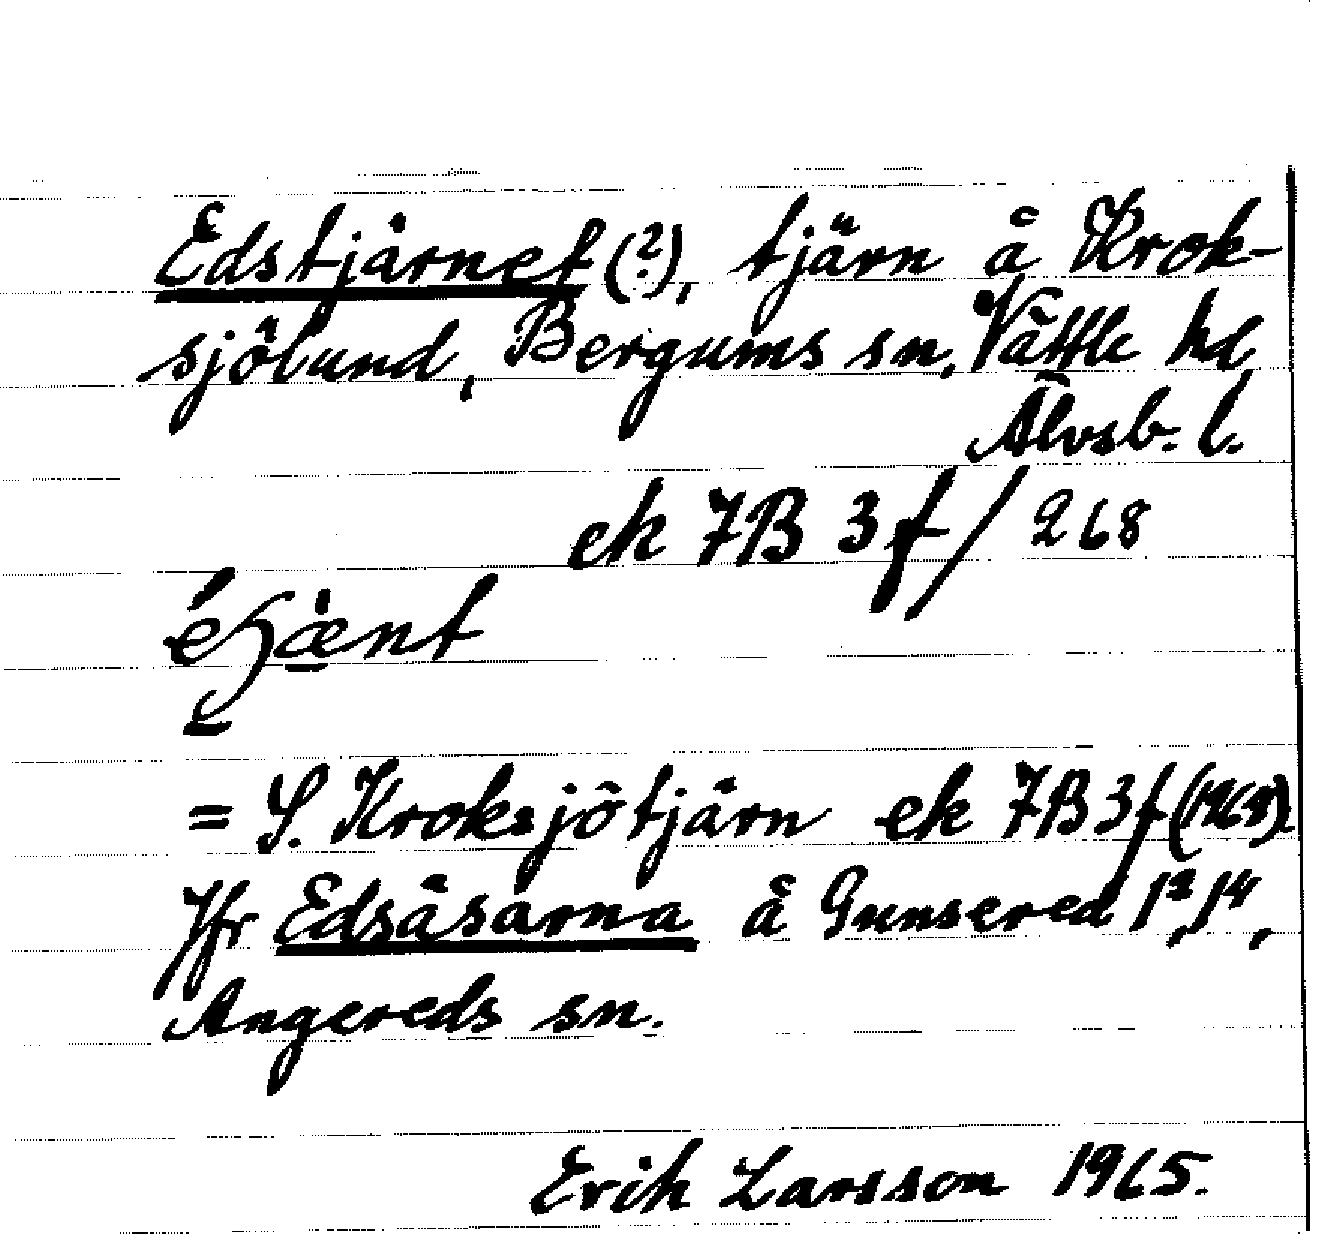 Edstjärnet (?), tjärn å Krok-
sjölund, Bergums sn, Vättle hd
Älvsb. l.
ek 7B 3f/268
= S. Kroksjötjärn ek 7B 3f
Jfr Edsåsarna å Gunsered 1², 1⁴,
Angereds sn.
Erik Larsson 1965.